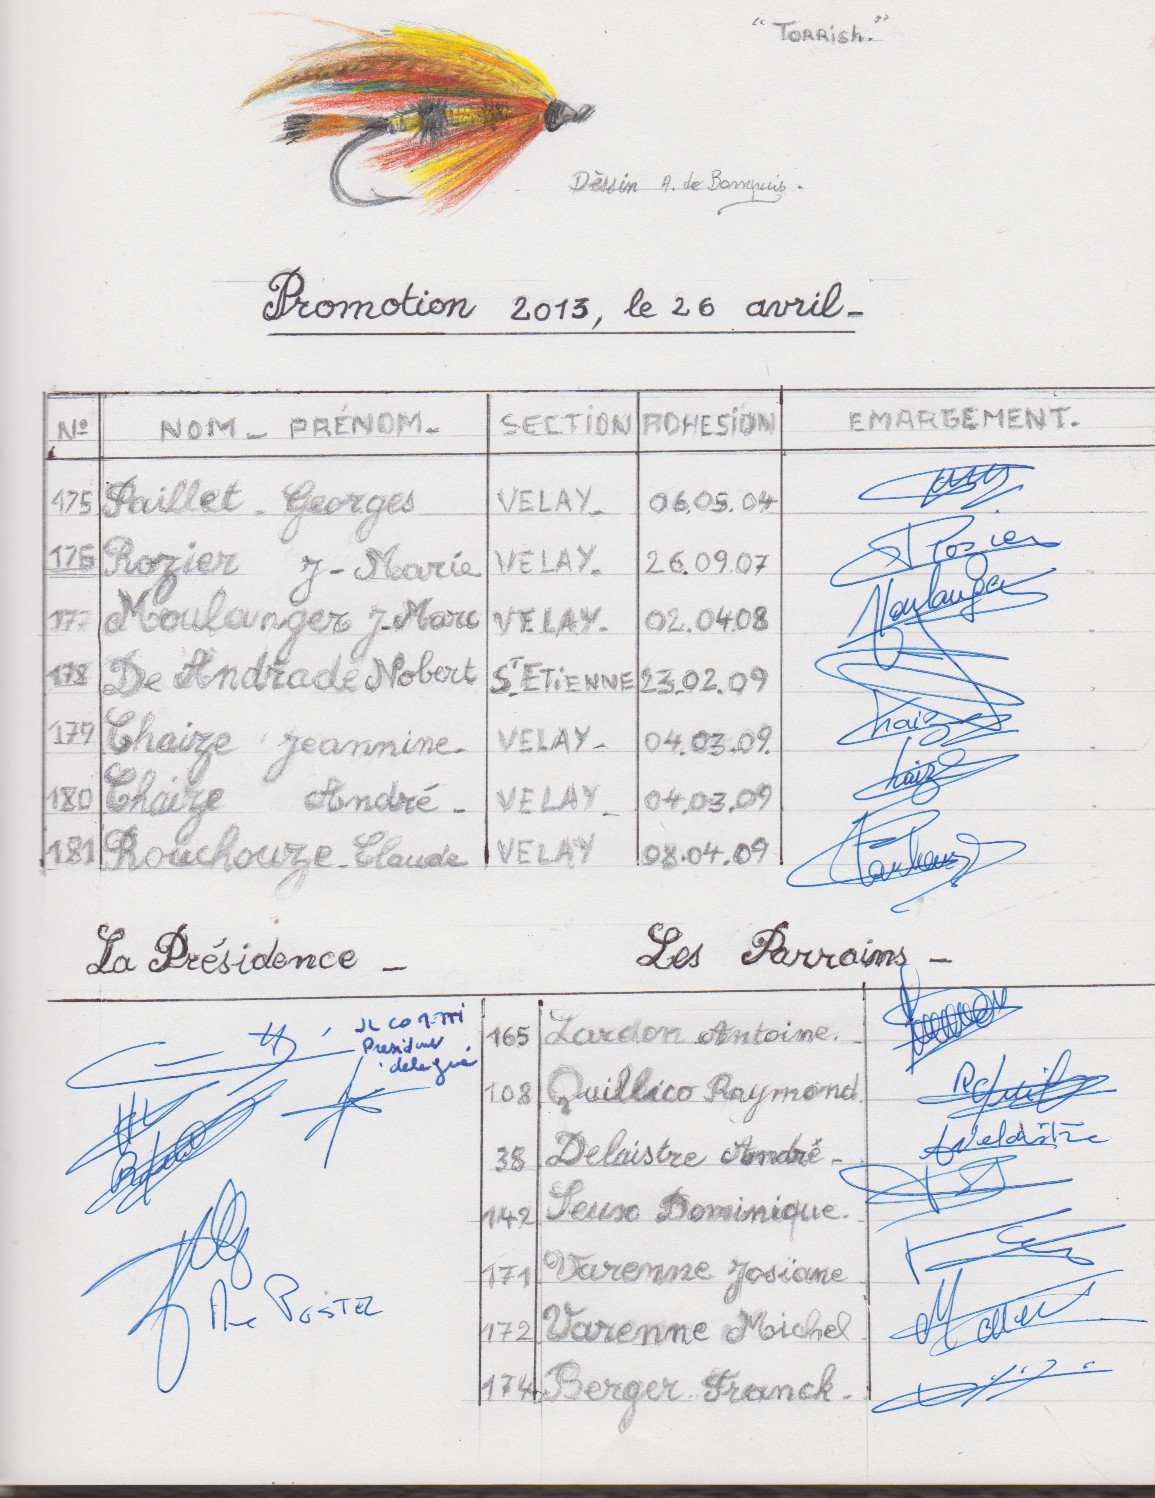 "Torrish."
Dèssin A. de Bompuis.
Promotion 2013, le 26 avril_
Nº NOM_ PRÉNOM_ SECTION ADHESION EMARGEMENT.
175 Paillet_ Georges VELAY_ 06.05.04
176 Rozier J-Marie VELAY_ 26.09.07 Rozier
177 Moulanger J-Marc VELAY_ 02.04.08 Moulanger
178 De Andrade Nobert ST ETIENNE 23.02.09
179 Chaize Jeannine_ VELAY_ 04.03.09. Chaize
180 Chaize André_ VELAY_ 04.03.09 Chaize
181 Rouchouze_Claude VELAY 08.04.09
La Présidence _ Les Parrains _
JL CONTTI
President
délégué
165 Lardon Antoine.
108 Quillico Raymond.
38 Delaistre André_ A Delaistre
142 Seux Dominique.
171 Varenne Josiane
172 Varenne Michel
174 Berger Franck.
POSTEL